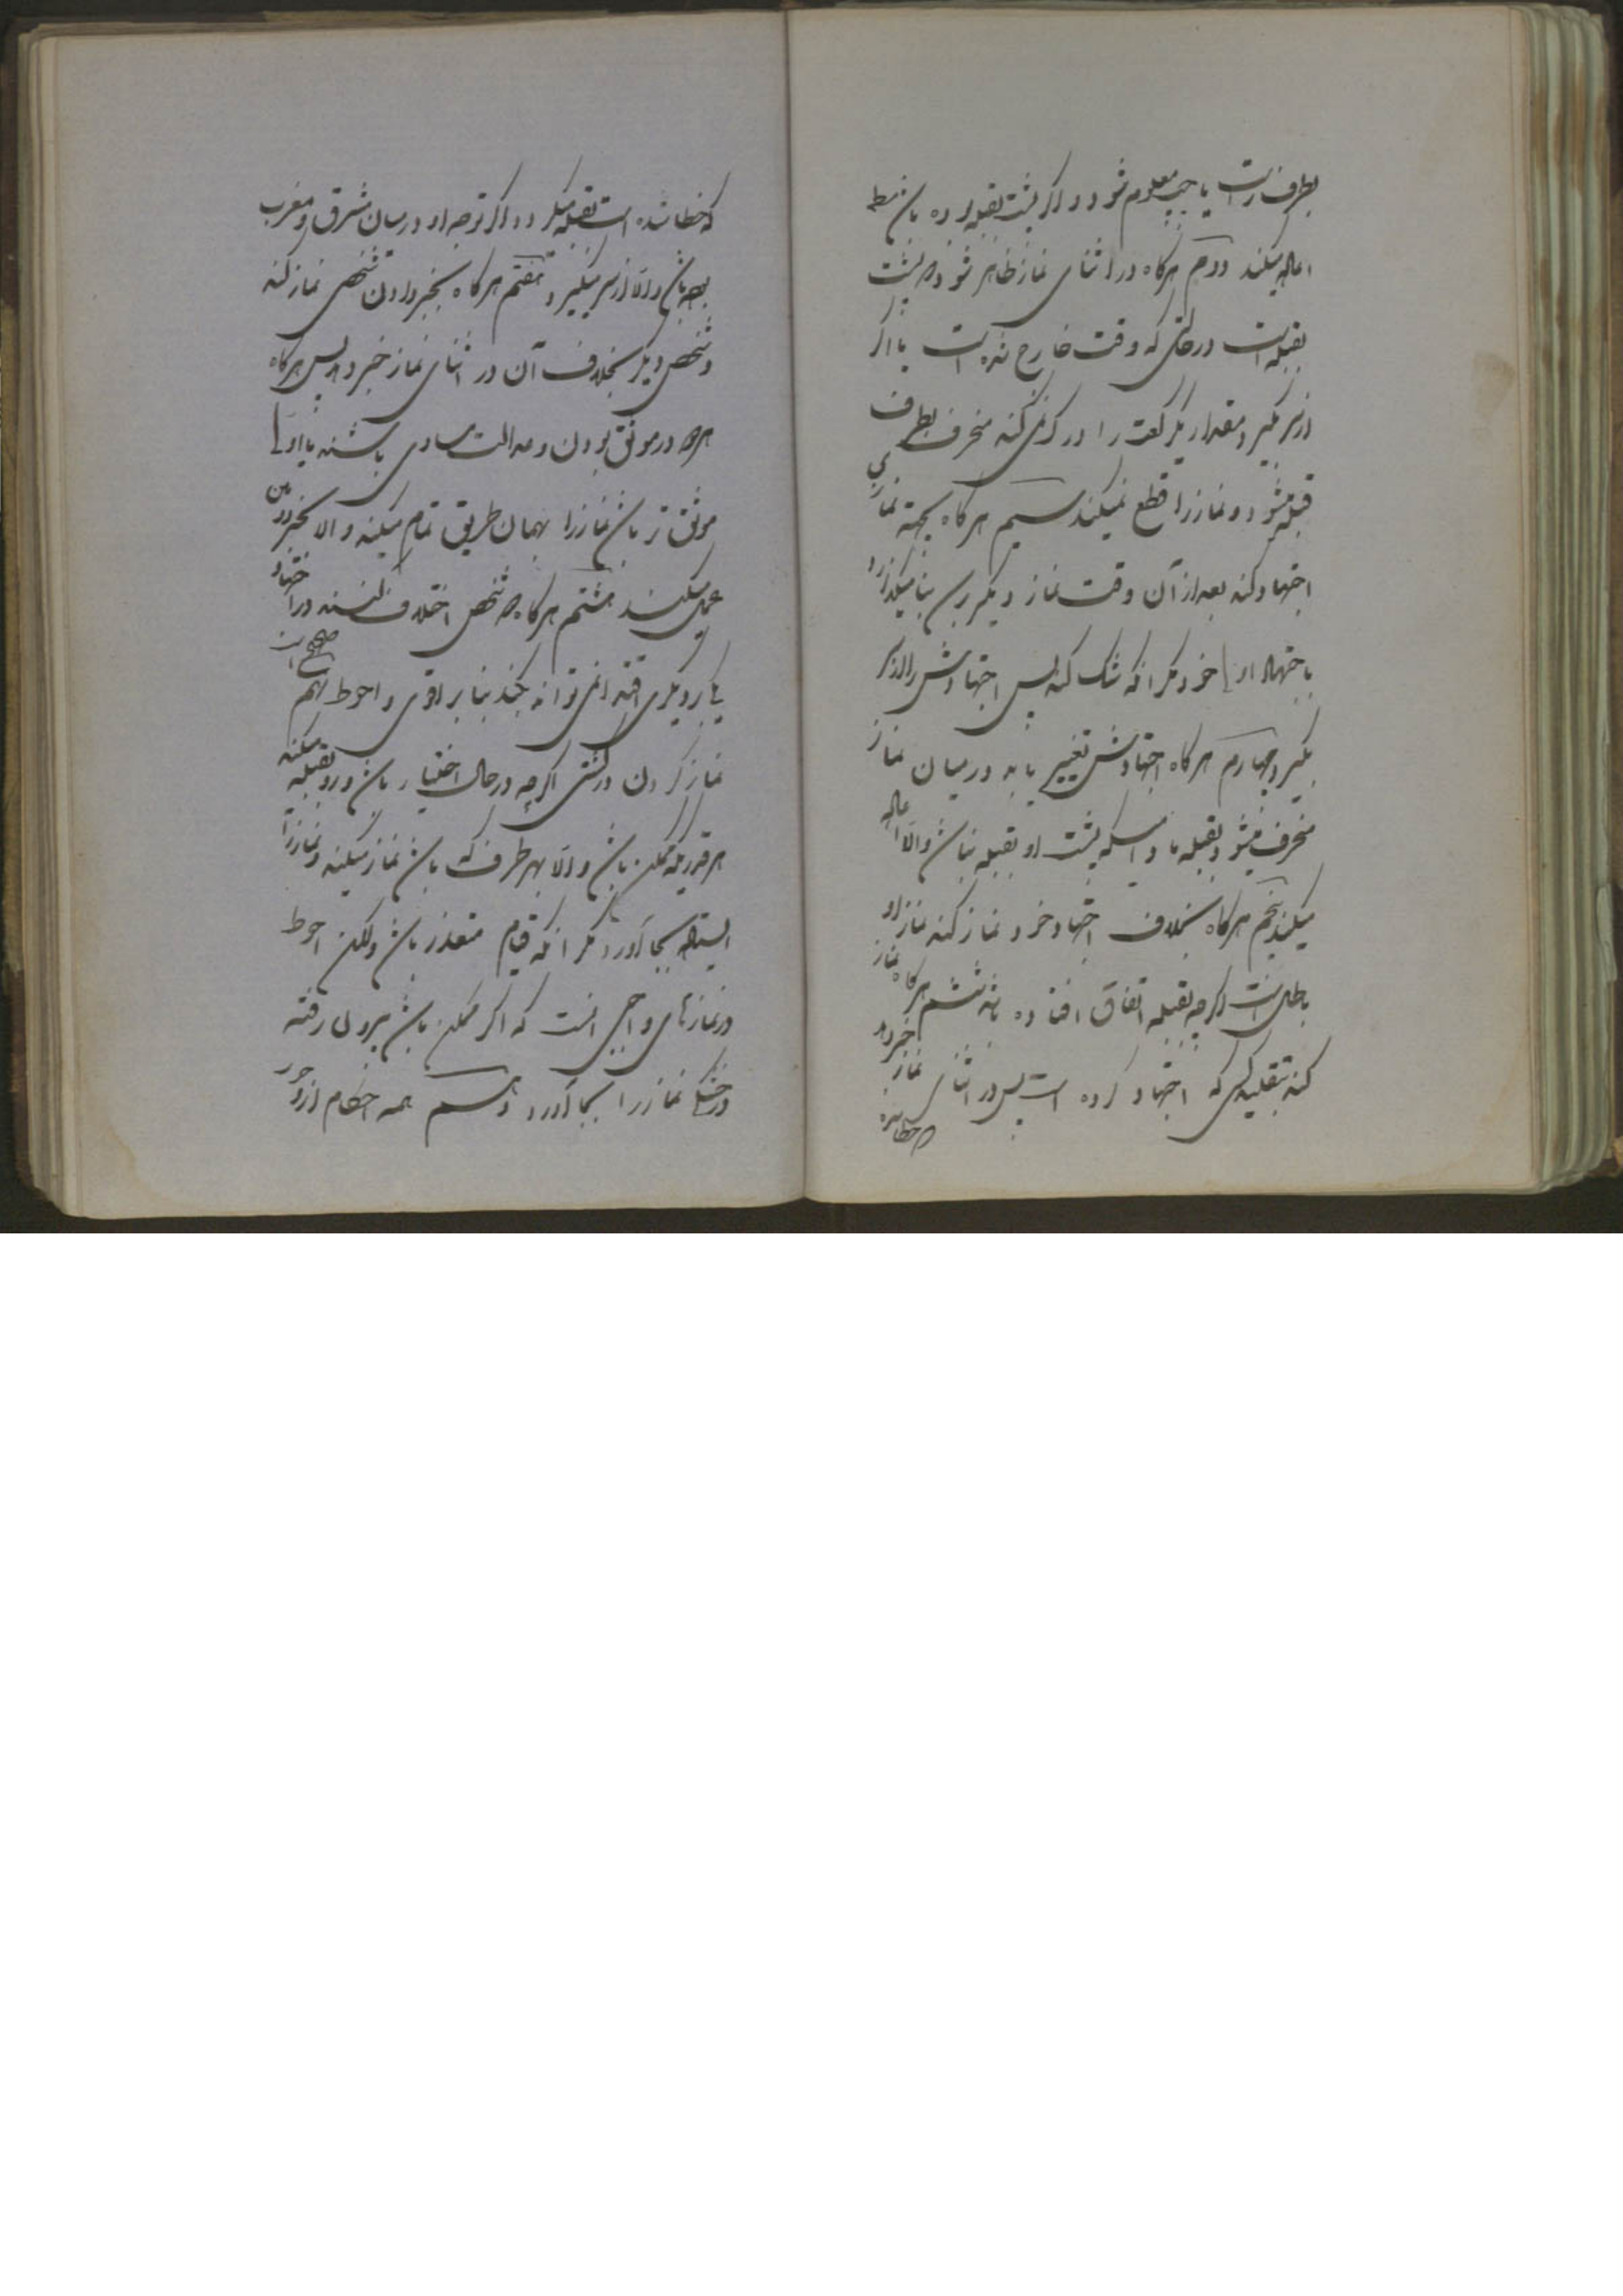 بطرف راست یا چپ معلوم شود و اگر پشت بقبله بوده باشد
اعاده میکند دویم هرگاه در اثنای نماز ظاهر شود که پشت
بقبله است در حالتی که وقت خارج نشده است یا اگر
از سر بگیرد مقدار یک رکعت را درک نمی کند منحرف بطرف
قبله میشود و نماز را قطع نمیکند سیم هرگاه بجهة نمازی
اجتهاد کند بعد از آن وقت نماز دیگر رسد بنا میگذارد
باجتهاد اول خود مگر آنکه شک کند پس اجتهادش را از سر
بگیرد چهارم هرگاه اجتهادش تغییر یابد در میان نماز
منحرف میشود بقبله مادامیکه پشت او بقبله نباشد والا اعاده
میکند پنجم هرگاه بخلاف اجتهاد خود نماز کند نماز او
باطل است اگر چه بقبله اتفاق افتاده باشد ششم هرگاه نماز
کند بتقلید کسی که اجتهاد کرده است پس در اثنای نماز خبر داد
که خطا شده
که خطا شده است بقبله میگردد اگر توجه او در میان مشرق و مغرب
بوده باشد والا از سر میگیرد هفتم هرگاه بخبر دادن شخصی نماز کند
و شخص دیگر بخلاف آن در اثنای نماز خبر داد پس هرگاه
هر دو در موثق بودن و عدالت مساوی باشند یا اول
موثق تر باشد نماز را بهمان طریق تمام میکند والا بخبر دویمین
عمل میکند هشتم هرگاه دو شخص اختلاف کنند در اجتهاد
یکی بدیگری اقتدا نمی تواند بکند بنا بر اقوی و احوط نهم صحیح است
نماز کردن در کشتی اگرچه در حال اختیار باشد و رو بقبله میکند
هر قدریکه ممکن باشد والا بهر طرف که باشد نماز میکند و نماز را
ایستاده بجا آورد مگر آنکه قیام متعذر باشد ولکن احوط
در نمازهای واجبی آنست که اگر ممکن باشد بیرون رفته
در خشکی نماز را بجا آورد دهم همه احکام از رو